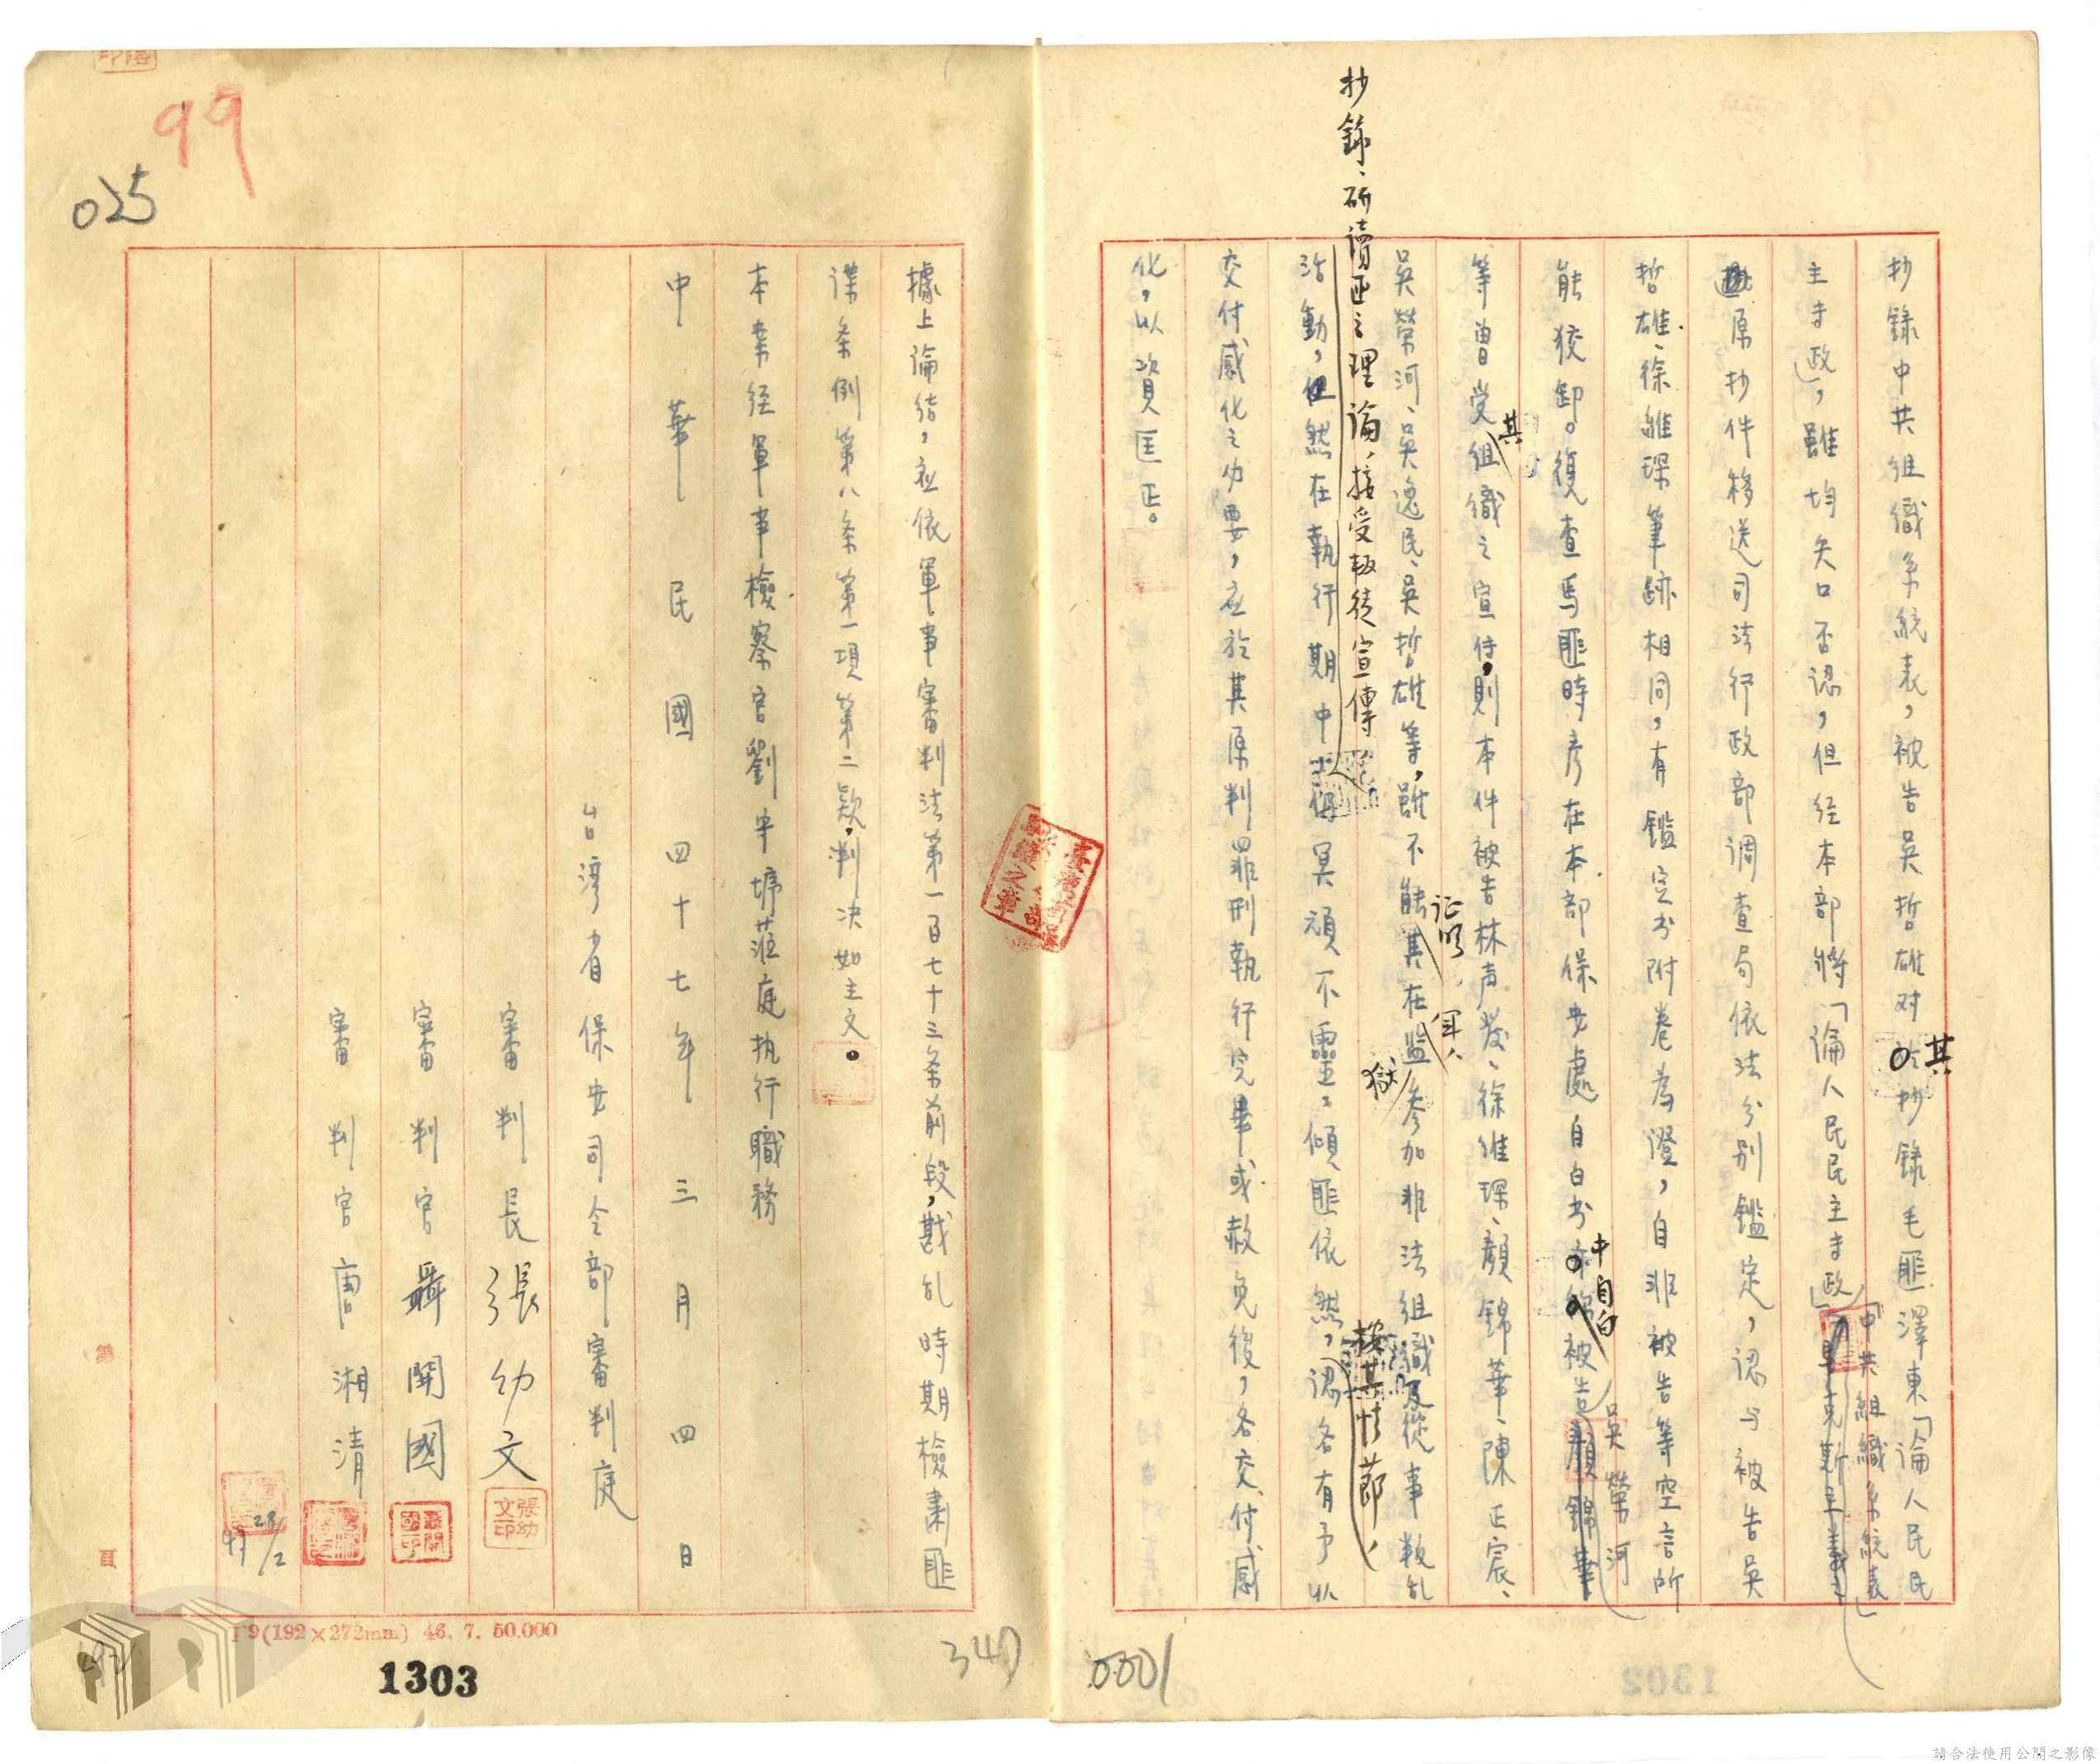 抄錄中共組織系統表，被告吳哲雄对其抄錄毛匪澤東「論人民民
主專政」，雖均矢口否認，但經本部將「論人民民主專政」「中共組織系統表」
原抄件移送司法行政部調查局依法分别鑑定，認与被告吳
哲雄、徐維琛筆跡相同，有鑑定书附卷為證，自非被告等空言所
能狡卸。復查馬匪時彥在本部保安處自白书中自白被告吳榮河
等曾受其組織之宣傳，則本件被告林声發、徐維琛、顏錦華、陳正宸、
吳榮河、吳逸民、吳哲雄等，雖不能証明其在監獄參加非法組織及從事叛乱
活動，但然在執行期中
抄錄、研讀匪之理論，接受叛徒宣傳，
冥頑不靈，傾匪依然，按其情節，認各有予以
交付感化之必要，应於其原判罪刑執行完畢或赦免後，各交付感
化，以資匡正。
據上論結，应依軍事審判法第一百七十三条前段，戡乱時期檢肅匪
諜条例第八条第一項第二款，判决如主文。
本案经軍事檢察官劉平埁蒞庭执行職務
中華民國四十七年三月四日
台湾省保安司令部審判庭
審判長張幼文
張幼文印
審判官聶開國
審判官唐湘清
99
025
28/2
347
0001
19(192×272mm) 46. 7. 50,000
第 頁
1303
請合法使用公開之影像